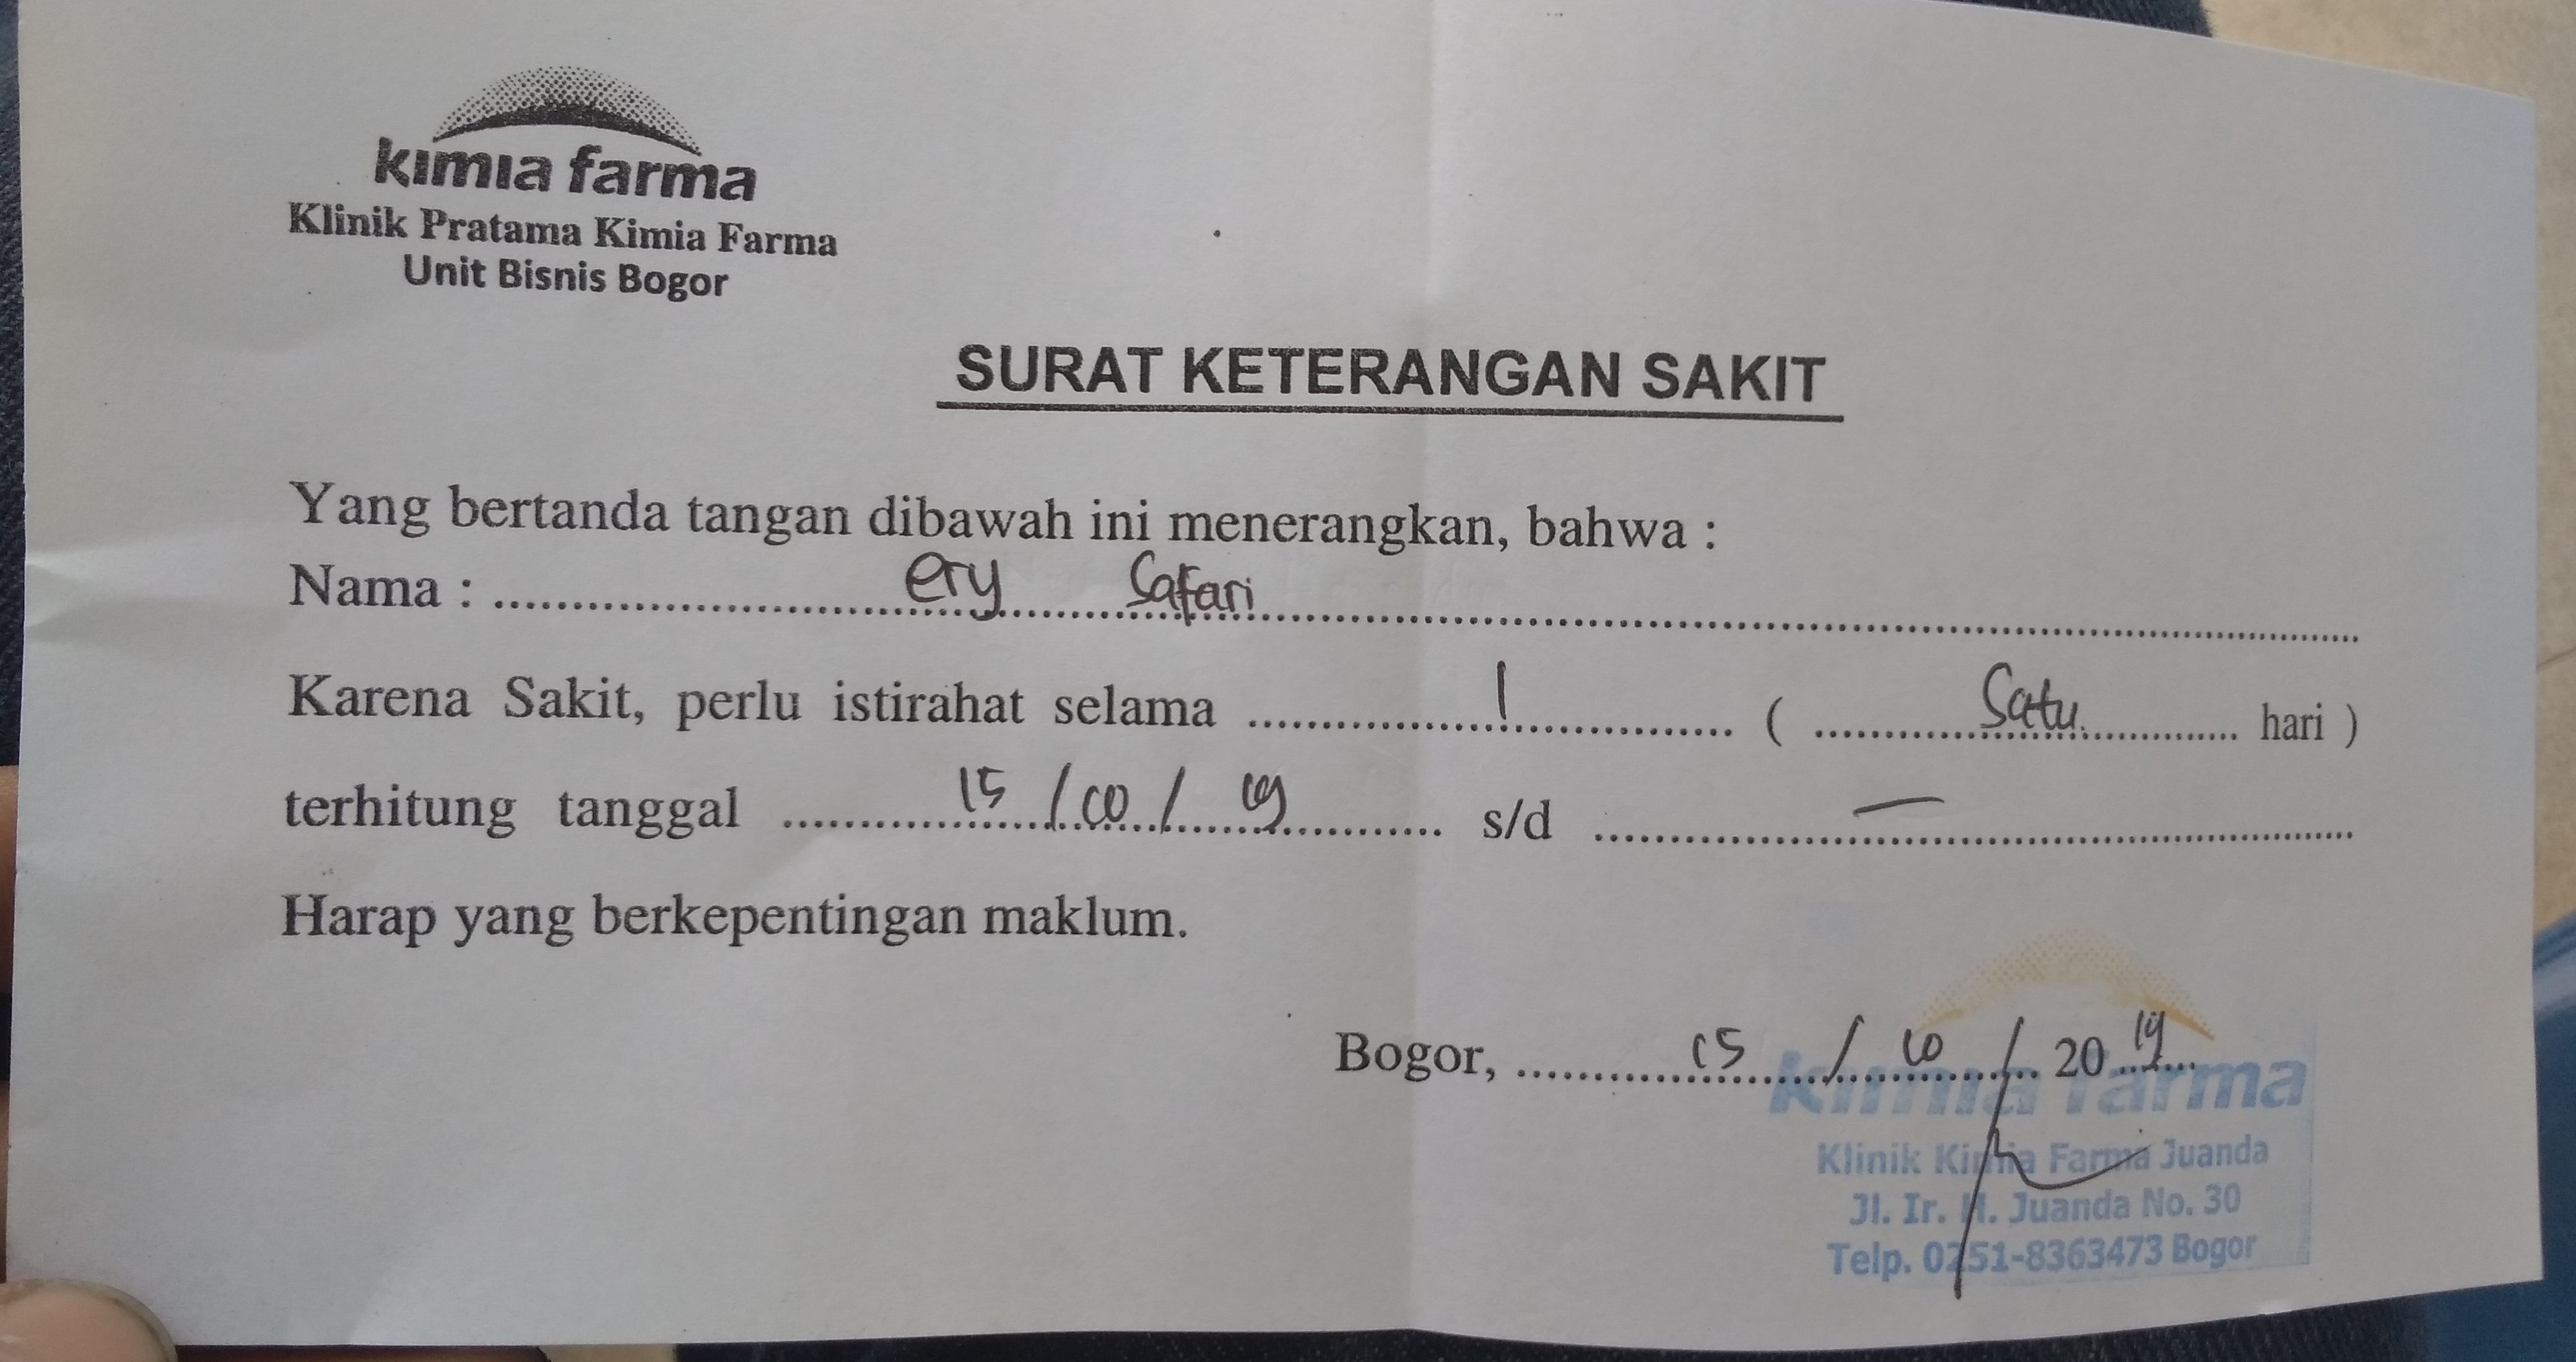 kimia farma
Klinik Pratama Kimia Farma
Unit Bisnis Bogor
SURAT KETERANGAN SAKIT
Yang bertanda tangan dibawah ini menerangkan, bahwa :
Nama : ery Safari
Karena Sakit, perlu istirahat selama 1 ( Satu hari )
terhitung tanggal 15 / 10 / 19 s/d —
Harap yang berkepentingan maklum.
Bogor, 15 / 10 / 2019
kimia farma
Klinik Kimia Farma Juanda
Jl. Ir. H. Juanda No. 30
Telp. 0251-8363473 Bogor